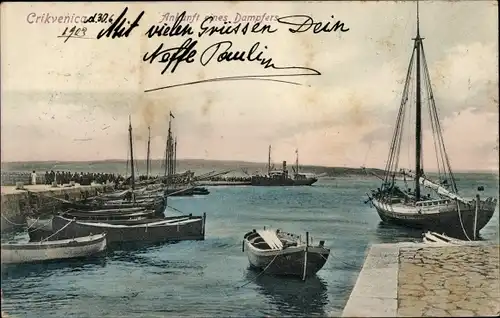 Crikvenica d. 30./6. Ankunft eines Dampfers
1908 Mit vielen Grüssen Dein
Neffe Paulin